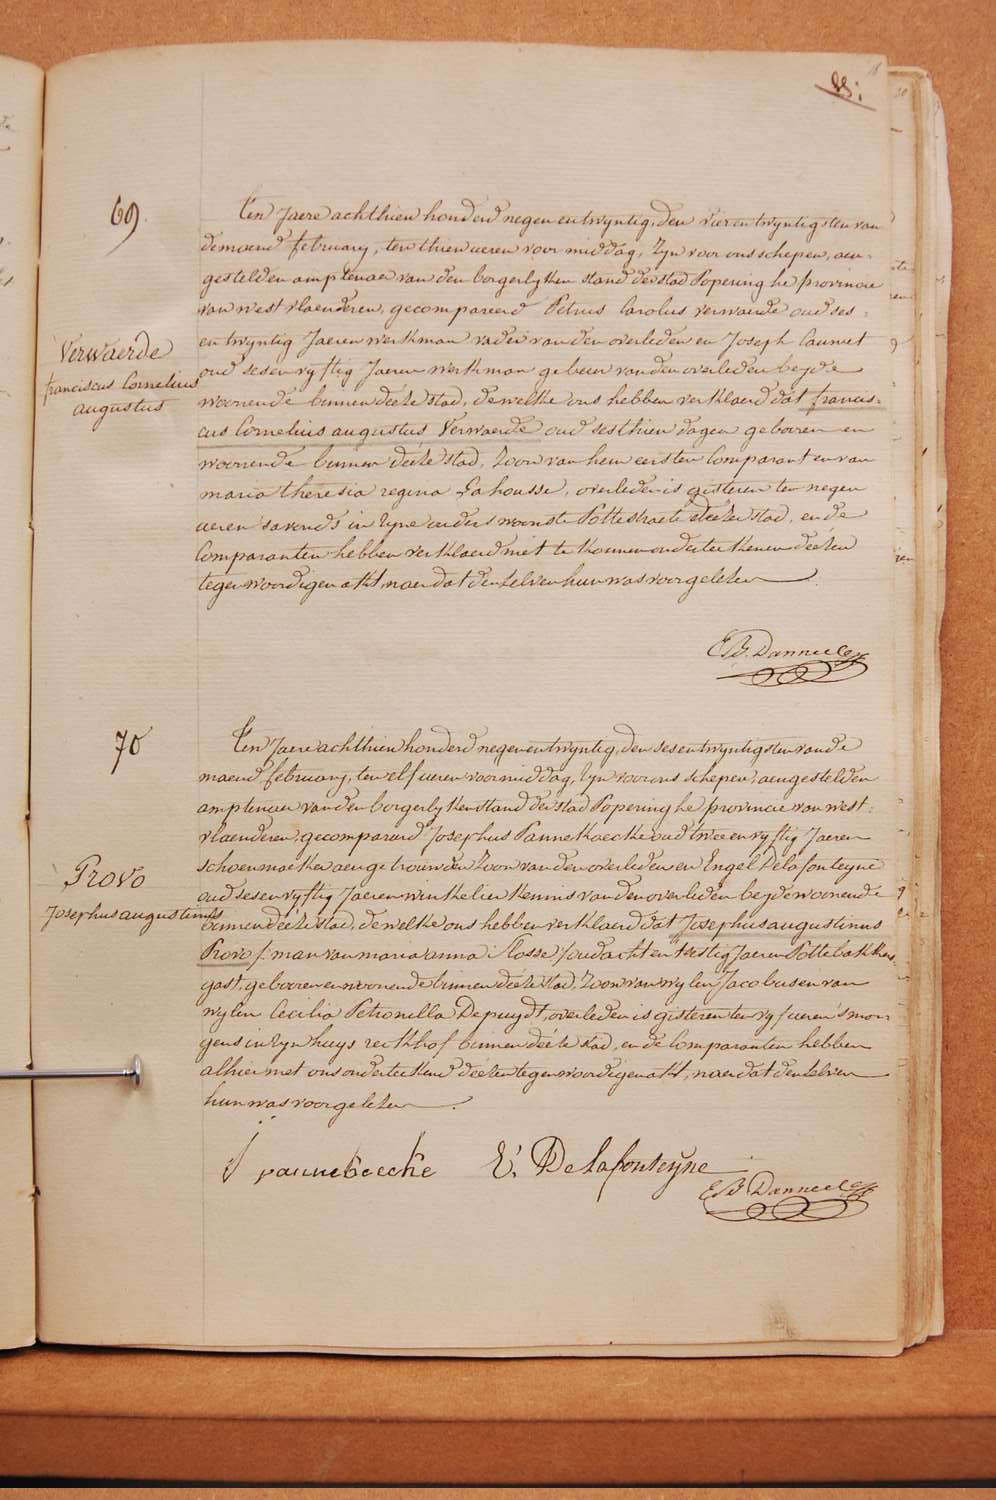 88:
69
Ten Jaere achthien honderd negen en twyntig, den vier en twyntigsten van
de maend february, ten thien ueren voor middag, Zyn voor ons schepen, aen-
gestelden amptenaer van den borgerlyken stand der stad Poperinghe provincie
van west vlaenderen, gecompareerd Petrus Carolus verwaerde oud ses-
Verwaerde
franciscus Cornelius
augustus
en twyntig Jaeren werkman vader van den overleden en Joseph Cauwet
oud ses en vyftig Jaeren werkman gebuer van den overleden beyde
woonende binnen deéze stad, dewelke ons hebben verklaerd dat francis-
cus Cornelius augustus Verwaerde oud sesthien dagen gebooren en
woonende binnen deéze stad, Zoon van hem eersten Comparant en van
maria theresia regina Lahousse, overleden is gisteren ten negen
ueren 'savonds in Zyne ouders woonste Pottestraete deézer stad, en de
Comparanten hebben verklaerd niet te konnen onderteekenen deézen
tegenwoordigen akt, naer dat denzelven hun was voorgelezen
E B. Danneel
70
Ten Jaere achthien honderd negen en twyntig, den ses en twyntigsten van de
maend february, ten elf ueren voormiddag, Zyn voor ons schepen, aengestelden
amptenaer van den borgerlyken stand der stad Poperinghe provincie van west-
vlaenderen, gecompareerd Josephus Pannekoecke oud twee en vyftig Jaeren
schoenmaeker aengetrouwden Zoon van den overleden en Engel Delafonteyne
Provo
Josephus augustinus
oud ses en vyftig Jaeren winkelier kennis van den overleden beyde woonende
binnen deéze stad, dewelke ons hebben verklaerd dat Josephus augustinus
Provo /: man van maria anna Slosse :/ oud acht en testig Jaeren Pottebakkers-
gast, gebooren en woonende binnen deéze stad, Zoon van wylen Jacobus en van
wylen Cecilia Petronilla Depuydt, overleden is gisteren ten vyf ueren 's mor-
gens in Zyn huys rekhof binnen deéze stad, en de Comparanten hebben
alhier met ons onderteekend deézen tegenwoordigen akt, naer dat denzelven
hun was voorgelezen.
J pannekoecke E. Delafonteyne
E B. Danneel